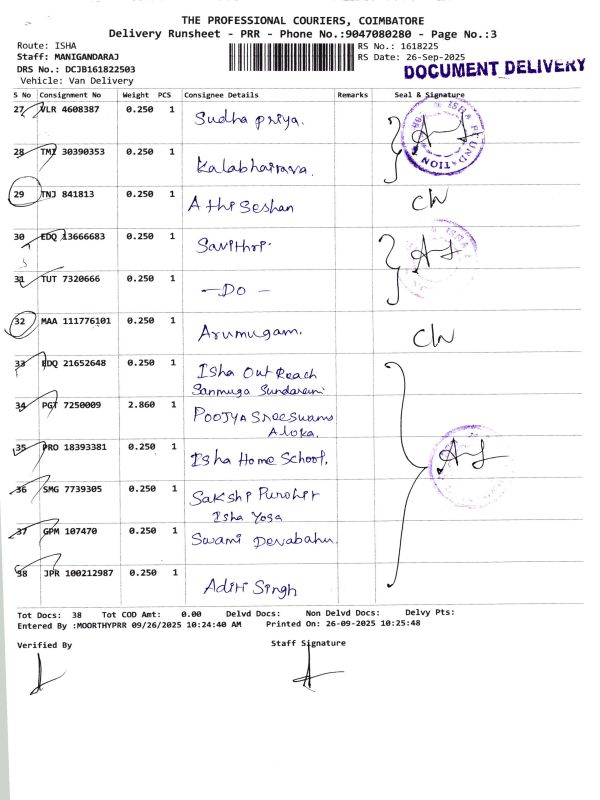 THE PROFESSIONAL COURIERS, COIMBATORE
Delivery Runsheet - PRR - Phone No.:9047080280 - Page No.:3
Route: ISHA
Staff: MANIGANDARAJ
DRS No.: DCJB161822503
Vehicle: Van Delivery
RS No.: 1618225
RS Date: 26-Sep-2025
DOCUMENT DELIVERY
S No Consignment No Weight PCS Consignee Details Remarks Seal & Signature
27 VLR 4608387 0.250 1 Sudha priya.
28 TMI 30390353 0.250 1 Kalabhairava.
29 TNJ 841813 0.250 1 Athi Seshan CW
30 EDQ 13666683 0.250 1 Savithri
31 TUT 7320666 0.250 1 - Do -
32 MAA 111776101 0.250 1 Arumugam. CW
33 EDQ 21652648 0.250 1 Isha Out Reach
Sanmuga Sundaram
34 PGT 7250009 2.860 1 Poojya Sree Swami
Aloka.
35 PRO 18393381 0.250 1 Isha Home School.
36 SMG 7739305 0.250 1 Sakshi Purohit
Isha Yoga
37 GPM 107470 0.250 1 Swami Devabahu.
38 JPR 100212987 0.250 1 Aditi Singh
Tot Docs: 38 Tot COD Amt: 0.00 Delvd Docs: Non Delvd Docs: Delvy Pts:
Entered By :MOORTHYPRR 09/26/2025 10:24:40 AM Printed On: 26-09-2025 10:25:48
Verified By Staff Signature